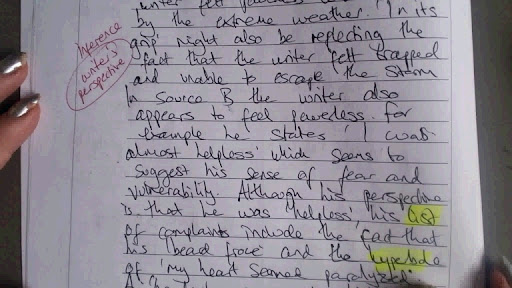 by the extreme weather. 'In its
grip' might also be reflecting the
fact that the writer felt trapped
and unable to escape the storm
In Source B the writer also
appears to feel powerless. for
example he states 'I was
almost helpless' which seems to
suggest his sense of fear and
vulnerability. Although his perspective
is that he was 'helpless' his list
of complaints include the fact that
his and the hyperbole
of 'my heart seemed paralyzed'.
Inference
writer's
perspective